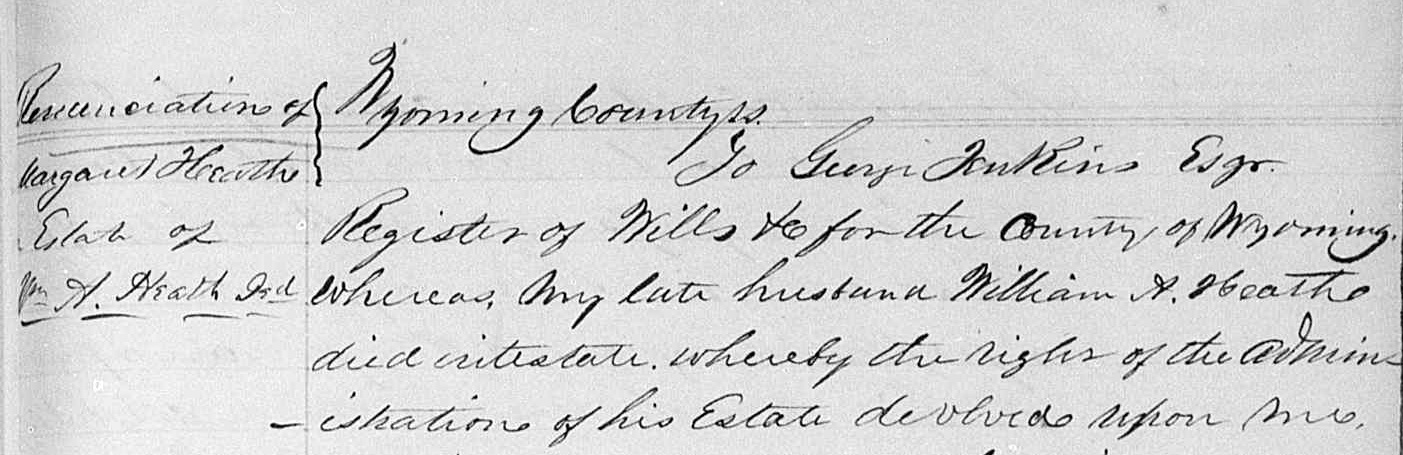 Renunciation of
Margaret Heath
Estate of
Wm A. Heath Decd
Wyoming County ss.
To George Jenkins Esqr.
Register of Wills &c for the County of Wyoming.
Whereas, My late husband William A. Heath
died intestate. whereby the right of the admin
- istration of his Estate devolved upon me.